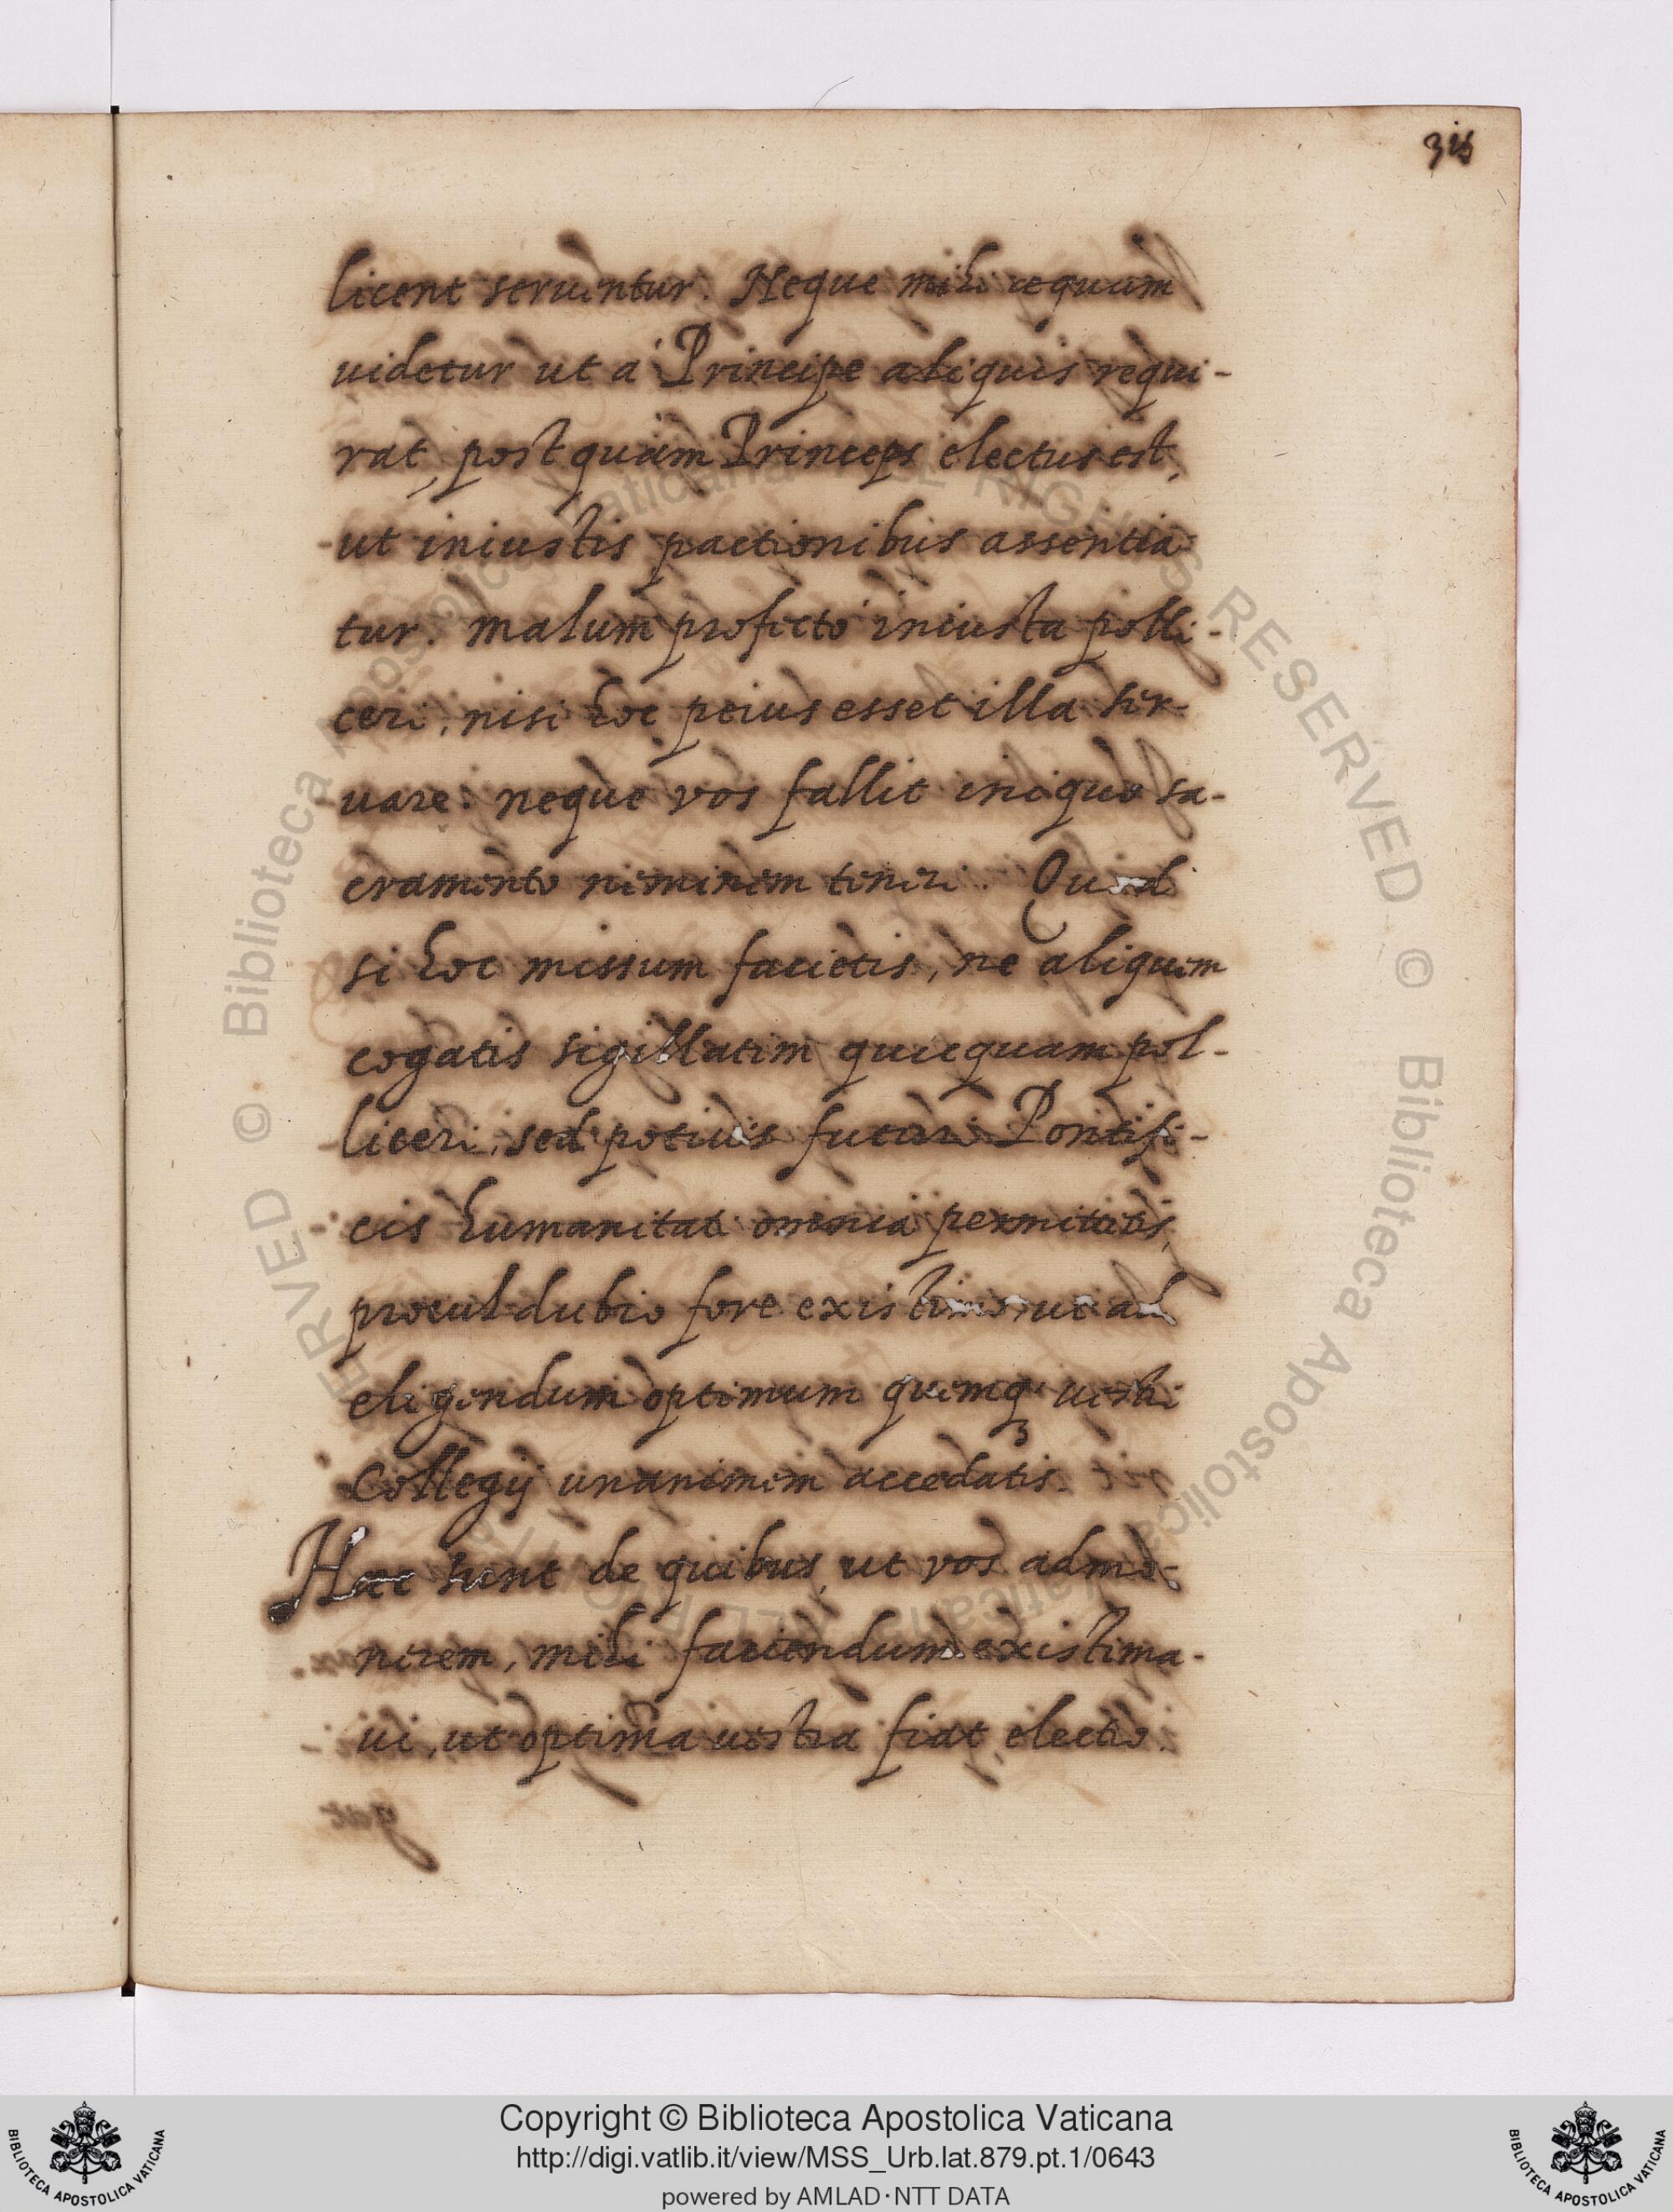 315
licent seruentur. Neque mihi æquum
uidetur ut à Principe aliquis requi-
rat, postquam Princeps electus est,
ut iniustis pactionibus assentia
tur. malum profecto iniusta polli-
ceri, nisi hoc peius esset illa ser-
uare: neque vos fallit iniquo sa-
cramento neminem teneri. Quod
si hoc missum facietis, ne aliquem
cogatis sigillatim quicquam pol-
liceri, sed potius futuri Pontifi-
cis humanitati omnia permittetis,
procul dubio fore existimo, ut ad
eligendum optimum quemq; uestri
Collegij unanimem accedatis.
Hæc sunt de quibus, ut vos admo-
nerem, mihi faciendum existima-
ui, ut optima uestra fiat electio.
Copyright © Biblioteca Apostolica Vaticana
http://digi.vatlib.it/view/MSS_Urb.lat.879.pt.1/0643
powered by AMLAD·NTT DATA
BIBLIOTECA APOSTOLICA VATICANA
BIBLIOTECA APOSTOLICA VATICANA